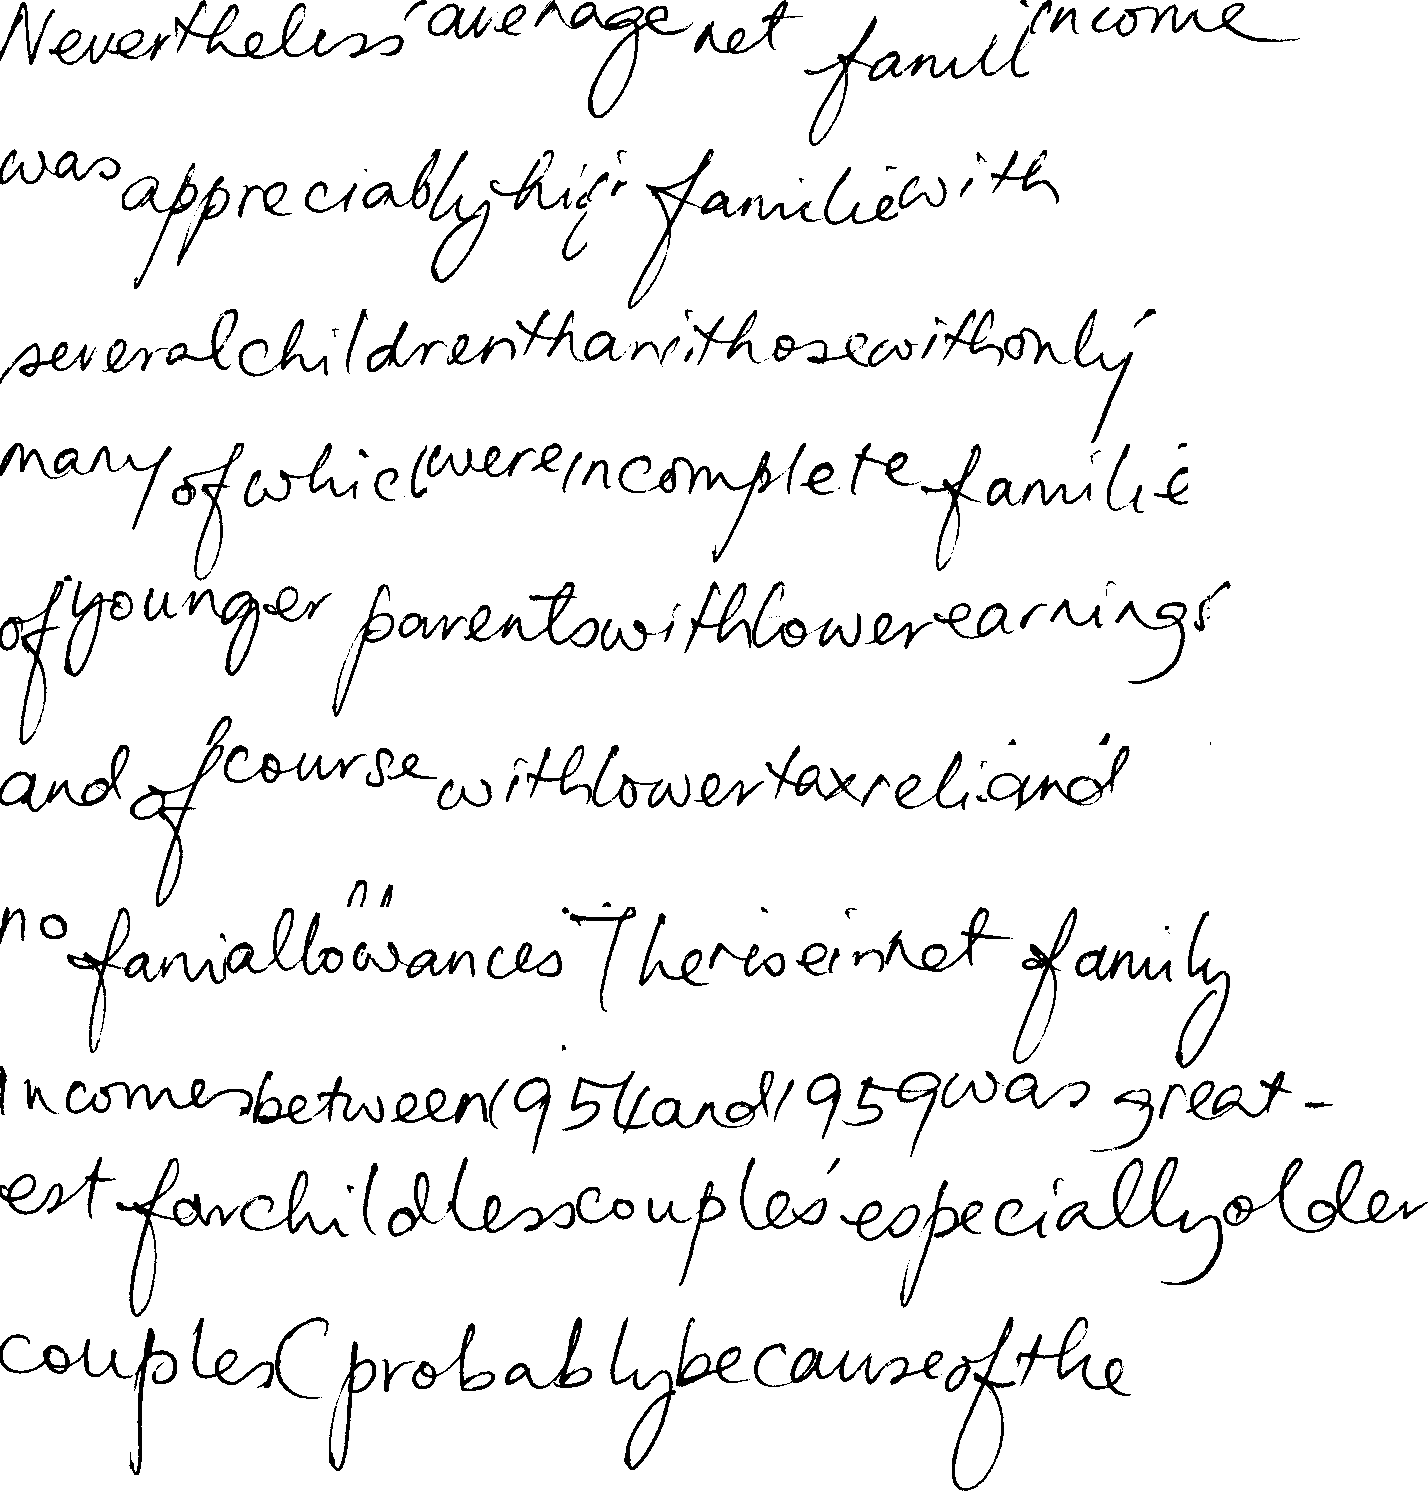 Nevertheless average net famil income
was appreciably hig familie with
several children than in those with only
many of which were incomplete familie
of younger parents with lower earnings
and of course with lower tax reli and
no fami allowances The rise in net family
incomes between 1954 and 1959 was great-
est for childless couples especially older
couples ( probably because of the